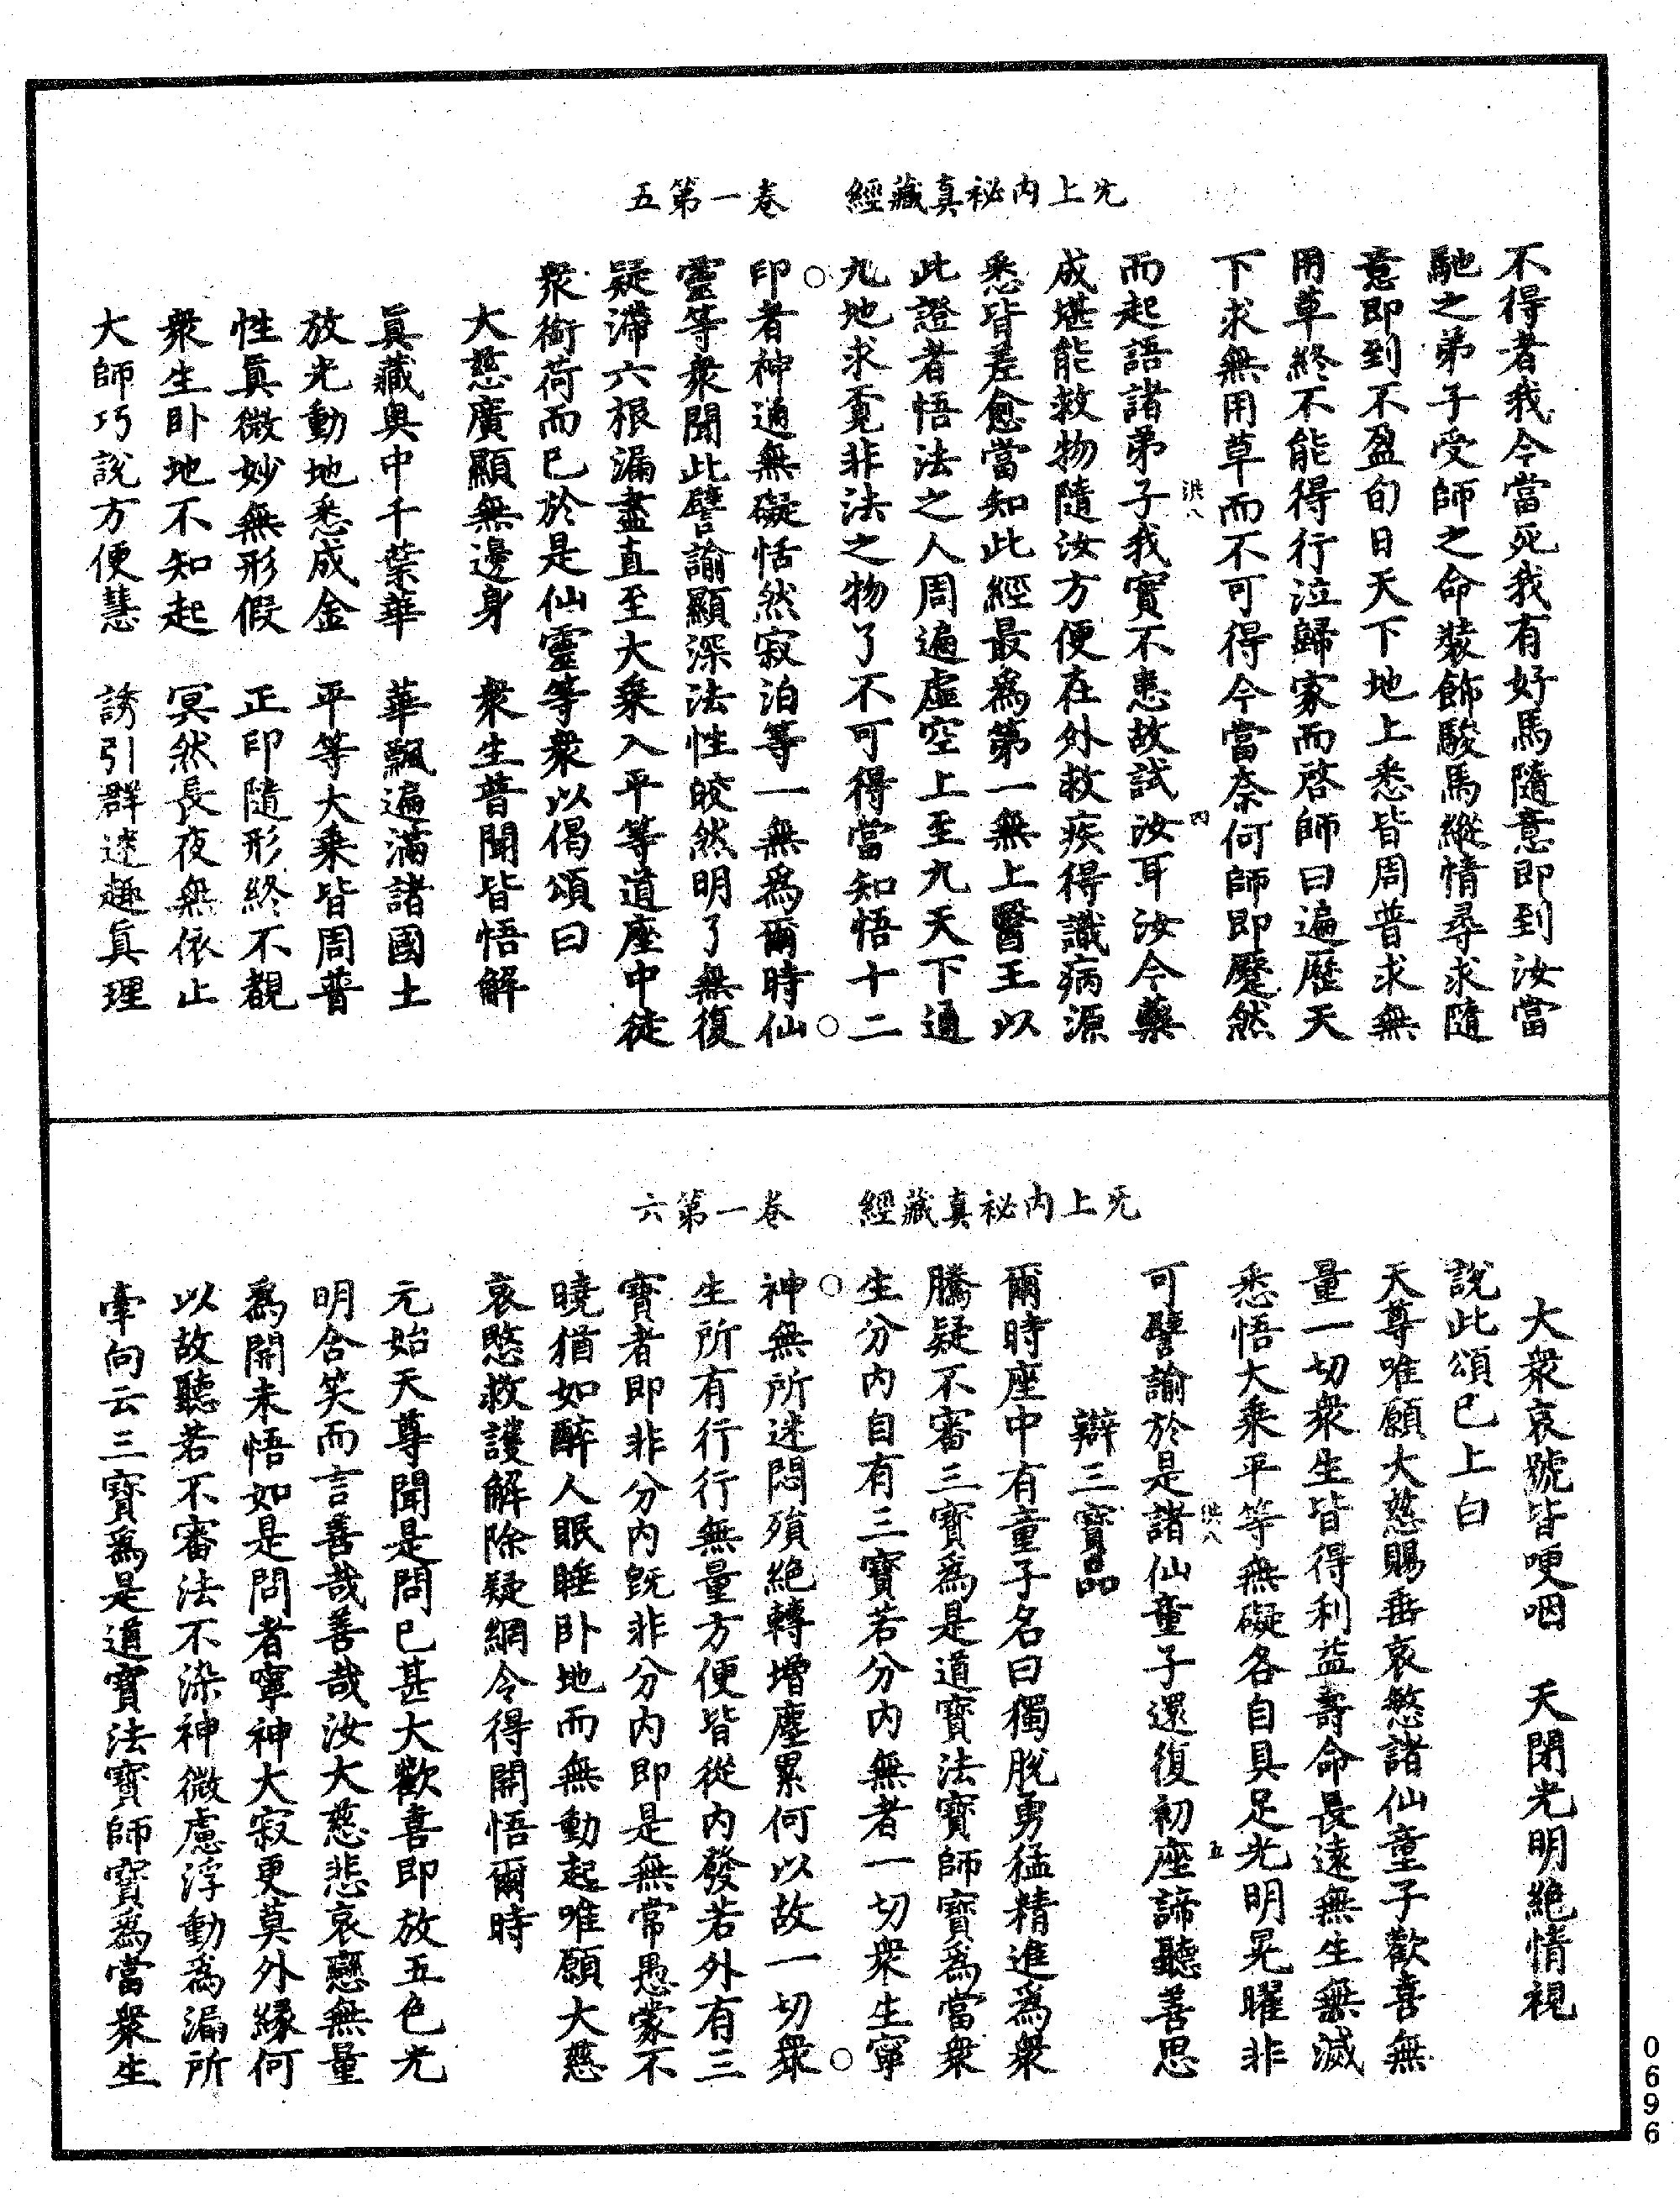 无上內祕真藏經　卷一第五
不得者我今當死我有好馬隨意即到汝當
馳之弟子受師之命裝飾駿馬縱情尋求隨
意即到不盈旬日天下地上悉皆周普求無
用草終不能得行泣歸家而啓師曰遍歷天
下求無用草而不可得今當奈何師即蹙然
洪八　四
而起語諸弟子我實不患故試汝耳汝今藥
成堪能救物隨汝方便在外救疾得識病源
悉皆差愈當知此經最為第一無上醫王以
此證者悟法之人周遍虛空上至九天下通
九地求覓非法之物了不可得當知悟十二
印者神通無礙恬然寂泊等一無為爾時仙
靈等衆聞此譬諭顯深法性皎然明了無復
疑滯六根漏盡直至大乘入平等道座中徒
衆銜荷而已於是仙靈等衆以偈頌曰
大慈廣顯無邊身　衆生普聞皆悟解
眞藏奧中千葉華　華飄遍滿諸國土
放光動地悉成金　平等大乘皆周普
性眞微妙無形假　正印隨形終不覩
衆生卧地不知起　冥然長夜無依止
大師巧說方便慧　誘引群迷趣眞理
无上內祕真藏經　卷一第六
大衆哀號皆哽咽　天閉光明絶情視
說此頌已上白
天尊唯願大慈賜垂哀愍諸仙童子歡喜無
量一切衆生皆得利益壽命長遠無生無滅
悉悟大乘平等無礙各自具足光明晃曜非
洪八　五
可譬諭於是諸仙童子還復初座諦聽善思
辯三寶品
爾時座中有童子名曰獨脫勇猛精進為衆
騰疑不審三寶為是道寶法寶師寶為當衆
生分內自有三寶若分內無者一切衆生寧
神無所迷悶殞絶轉增塵累何以故一切衆
生所有行行無量方便皆從內發若外有三
寶者即非分內旣非分內即是無常愚蒙不
曉猶如醉人眠睡卧地而無動起唯願大慈
哀愍救護解除疑網令得開悟爾時
元始天尊聞是問已甚大歡喜即放五色光
明含笑而言善哉善哉汝大慈悲哀戀無量
為開未悟如是問者寧神大寂更莫外緣何
以故聽若不審法不染神微慮浮動為漏所
牽向云三寶為是道寶法寶師寶為當衆生
0696